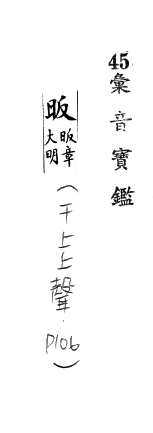 45彙音寶鑑
昄
昄章
大明
(干上上聲.P106)